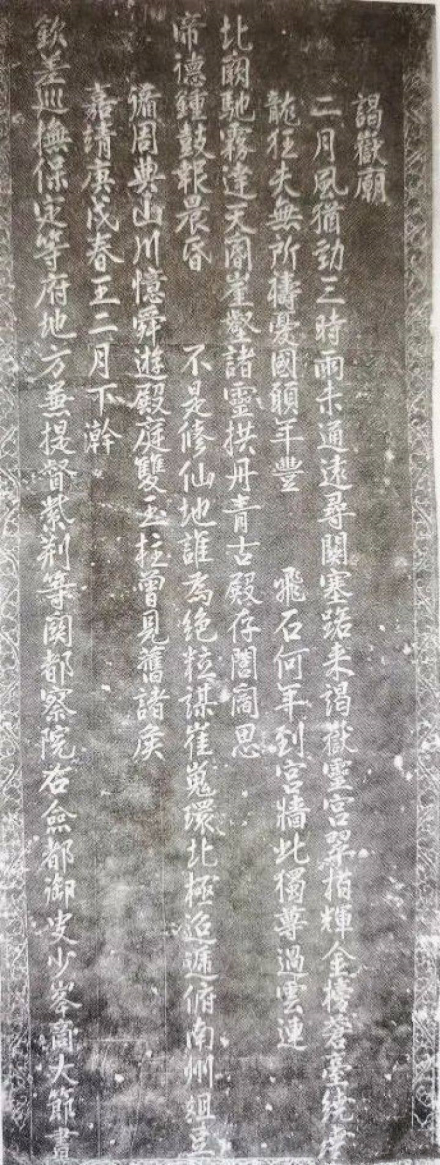 謁嶽廟
二月風猶勁三時雨未通遠尋關塞路来謁嶽靈宮翠栢輝金榜臺繞
龍狂夫無所禱憂國願年豐 飛石何年到宮牆此獨尊過雲連
北朔馳霧達天閽崖壑諸靈拱丹青古殿存閭閻思
帝德鍾鼓報晨昏 不是修仙地誰為絶粒謀崔嵬環北極迢遞俯南州俎豆
備周典山川憶舜遊殿庭雙玉柱曾見舊諸侯
嘉靖庚戌春王二月下澣
欽差巡撫保定等府地方兼提督紫荆等関都察院右僉都御史少峯商大節書